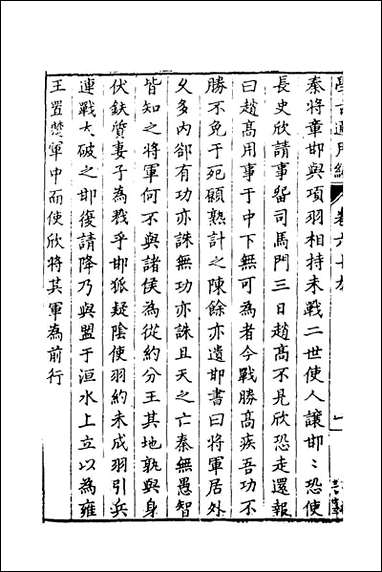 學古適用編 卷六十九 一
秦將章邯與項羽相持未戰二世使人讓邯〻恐使
長史欣請事畱司馬門三日趙高不見欣恐走還報
曰趙高用事于中下無可為者今戰勝高疾吾功不
勝不免于死願熟計之陳餘亦遺邯書曰將軍居外
久多內郤有功亦誅無功亦誅且天之亡秦無愚智
皆知之將軍何不與諸侯為從約分王其地孰與身
伏鈇質妻子為戮乎邯狐疑陰使羽約未成羽引兵
連戰大破之邯復請降乃與盟于洹水上立以為雍
王置楚軍中而使欣將其軍為前行